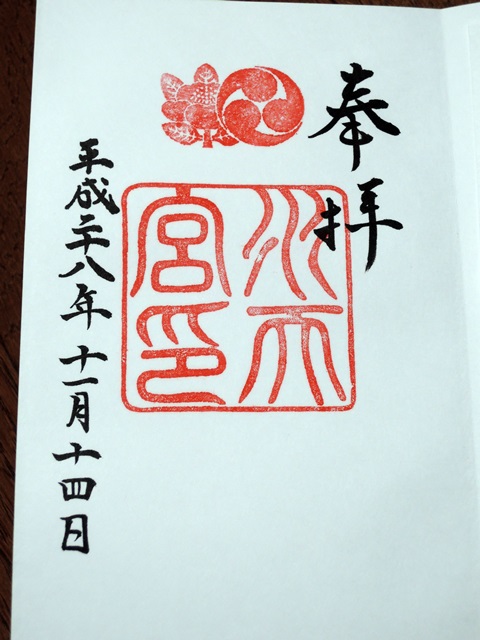 奉拝
水天
宮印
平成二十八年十一月十四日